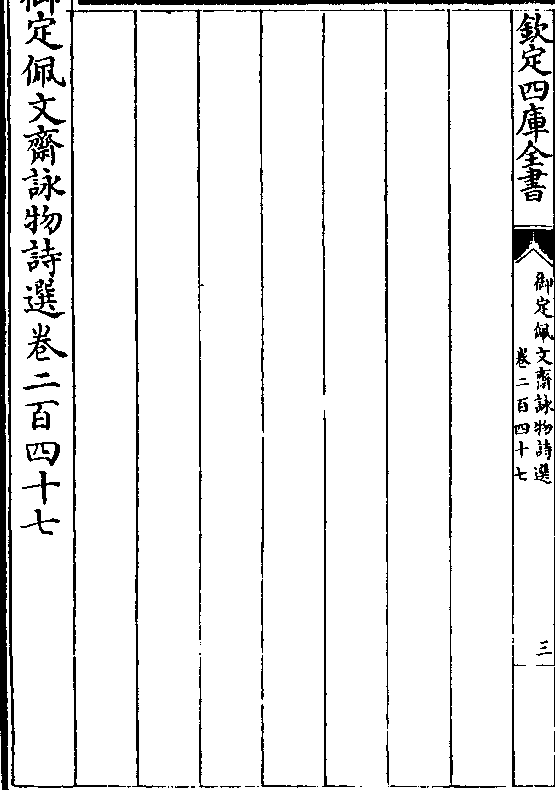 欽定四庫全書
御定佩文齋詠物詩選
卷二百四十七
三
御定佩文齋詠物詩選卷二百四十七